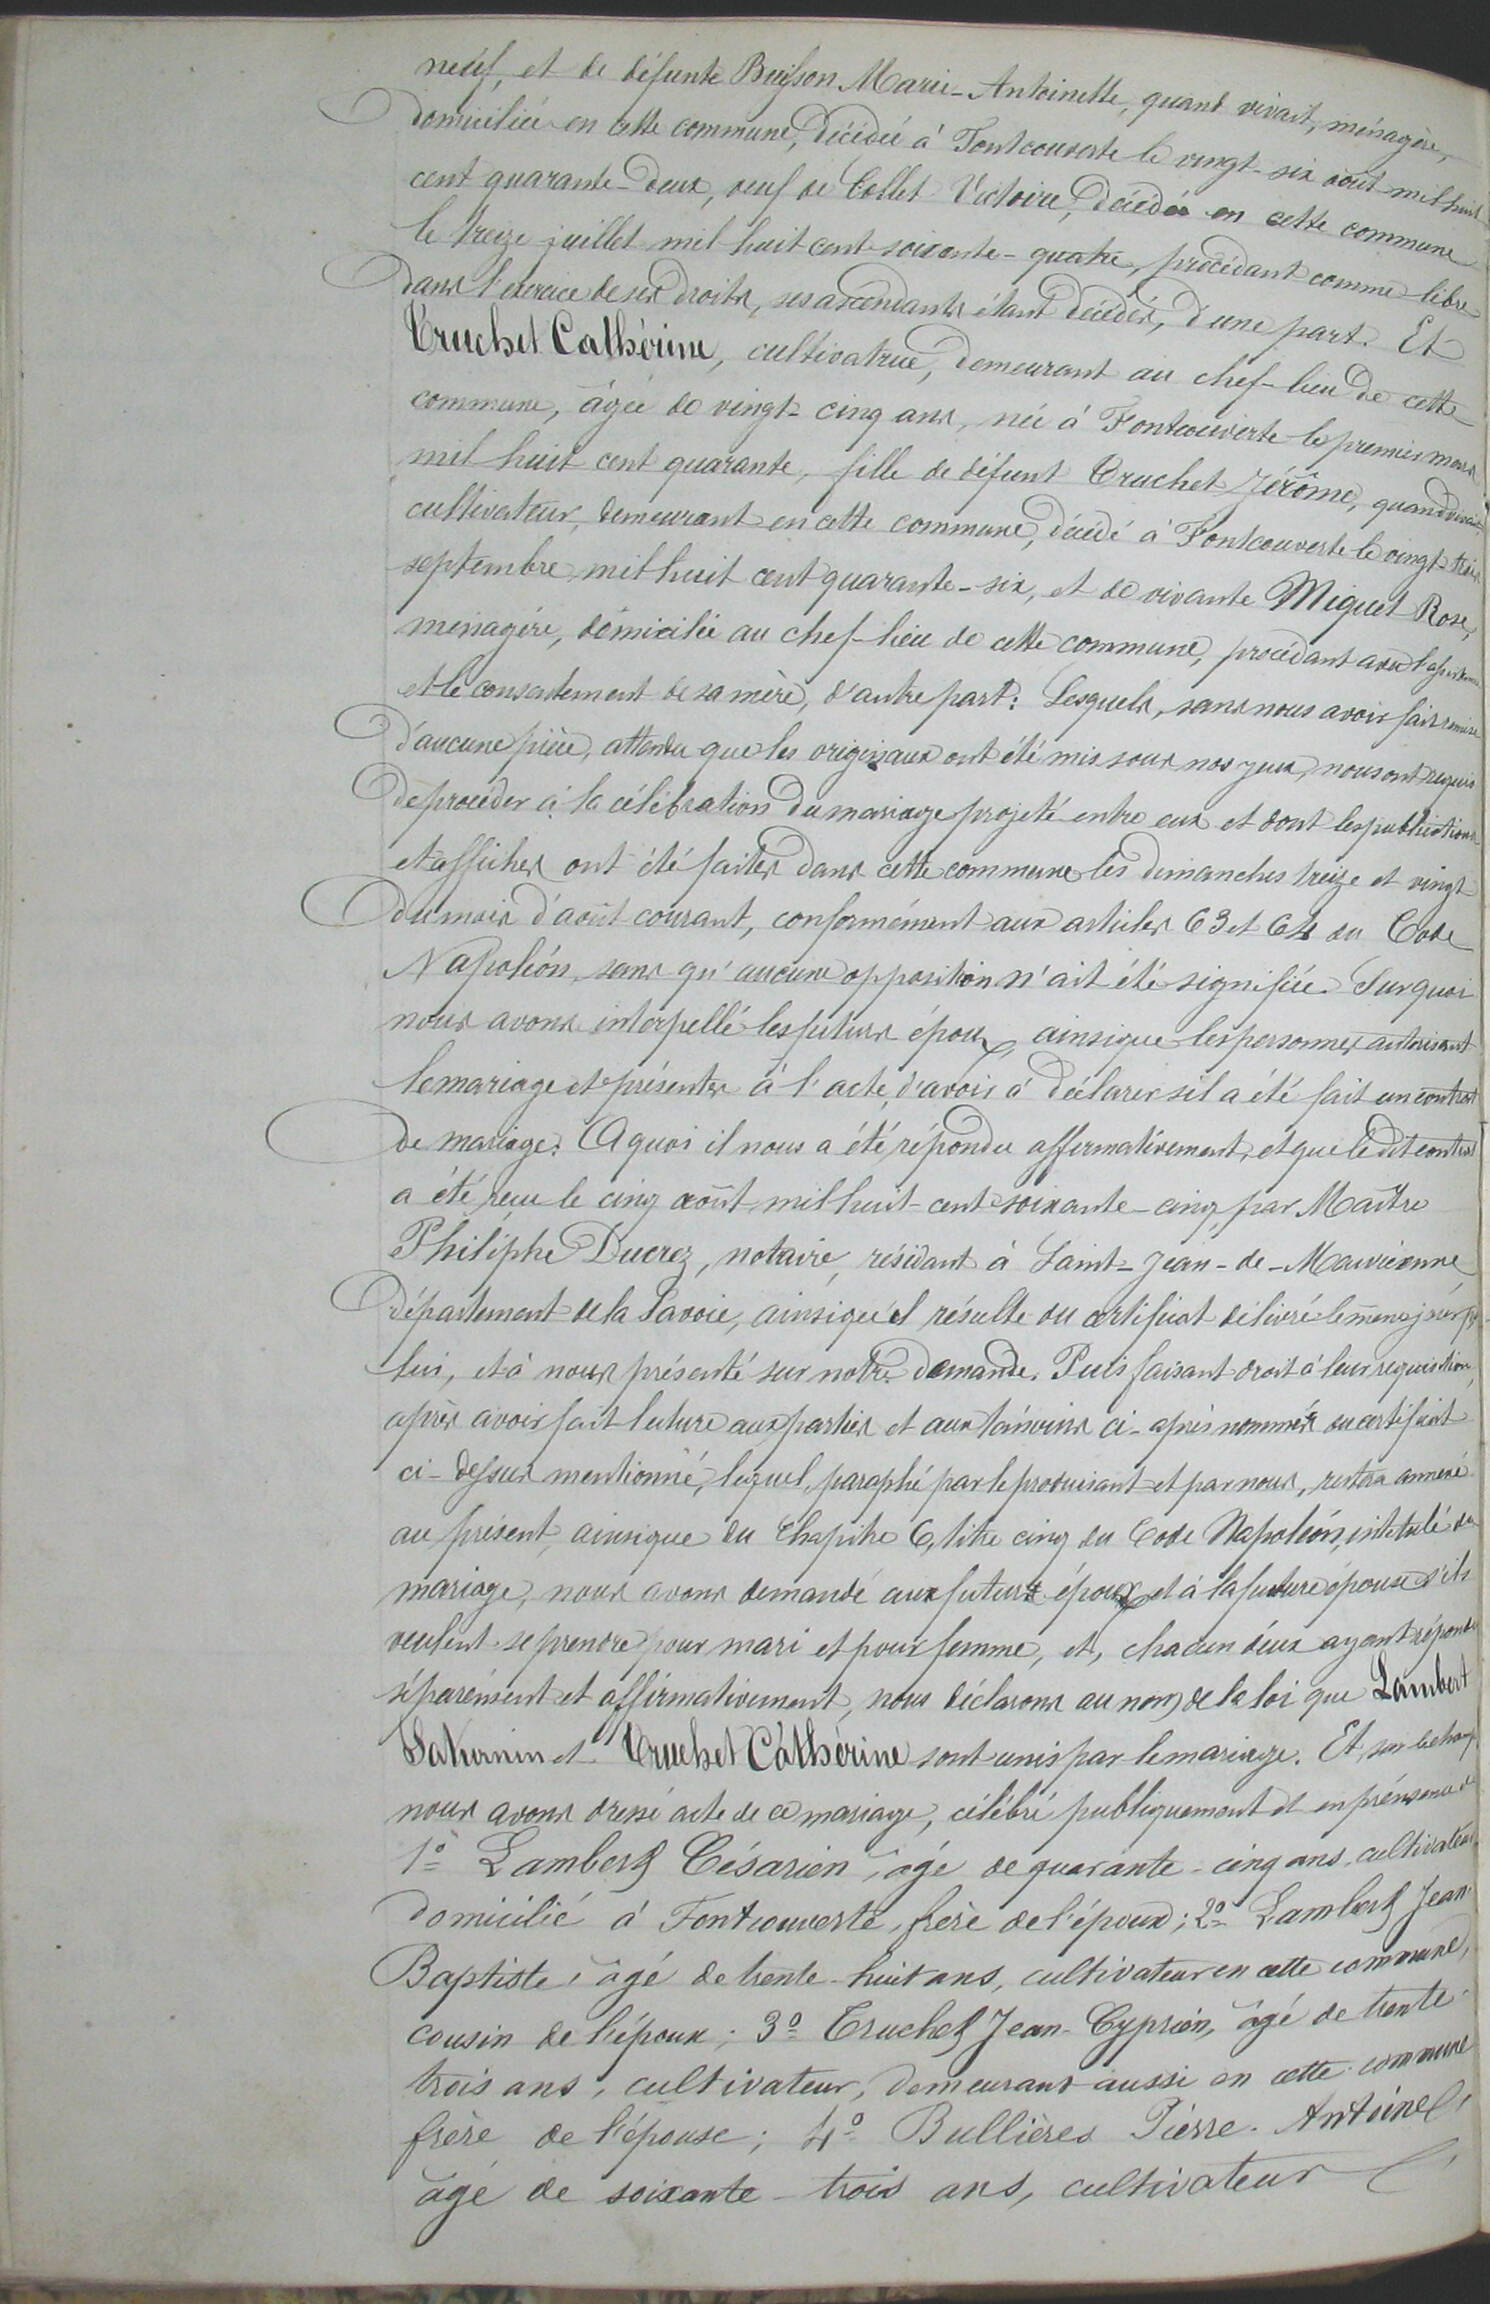 neuf, et de défunte Buisson Marie-Antoinette, quand vivait, ménagère,
domiciliée en cette commune, décédée à Fontcouverte le vingt-six août mil huit
cent quarante-deux, veuf de Collet Victoire, décédée en cette commune
le treize juillet mil huit cent soixante-quatre, procédant comme libre
dans l'exercice de ses droits, ses ascendants étant décédés, d'une part. Et
Truchet Cathérine, cultivatrice, demeurant au chef-lieu de cette
commune, âgée de vingt-cinq ans, née à Fontcouverte le premier mars
mil huit cent quarante, fille de défunt Truchet Jérôme, quand vivait,
cultivateur, demeurant en cette commune, décédé à Fontcouverte le vingt-trois
septembre mil huit cent quarante-six, et de vivante Miquet Rose,
ménagère, domiciliée au chef-lieu de cette commune, procédant avec l'assistance
et le consentement de sa mère, d'autre part: Lesquels, sans nous avoir fait remise
d'aucune pièce, attendu que les originaux ont été mis sous nos yeux, nous ont requis
de procéder à la célébration du mariage projeté entre eux et dont les publications
et affiches ont été faites dans cette commune les dimanches treize et vingt
du mois d'août courant, conformément aux articles 63 et 64 du Code
Napoléon, sans qu'aucune opposition n'ait été signifiée. Sur quoi
nous avons interpellé les futurs époux, ainsi que les personnes autorisant
le mariage et présentes à l'acte, d'avoir à déclarer s'il a été fait un contrat
de mariage. A quoi il nous a été répondu affirmativement, et que le dit contrat
a été reçu le cinq août mil huit-cent soixante-cinq, par Maître
Philiphe Ducrez, notaire, résidant à Saint-Jean-de-Maurienne
département de la Savoie, ainsi qu'il résulte du certificat délivré le même jour par
lui, et à nous présenté sur notre demande. Puis faisant droit à leur requisition,
après avoir fait lecture aux parties et aux témoins ci-après nommés du certificat
ci-dessus mentionné, lequel, paraphé par le produisant et par nous, restera annexé
au présent, ainsi que du Chapitre 6, titre cinq du Code Napoléon, intitulé du
mariage, nous avons demandé aux futurs époux et à la future épouse s'ils
veulent se prendre pour mari et pour femme, et, chacun d'eux ayant répondu
séparément et affirmativement, nous déclarons au nom de la loi que Lambert
Saturnin et Truchet Cathérine sont unis par le mariage. Et, sur le champ
nous avons dressé acte de ce mariage, célébré publiquement et en présence de
1º Lambert Césarien, âgé de quarante-cinq ans, cultivateur
domicilié à Fontcouverte, frère de l'époux; 2º Lambert Jean-
Baptiste, âgé de trente-huit ans, cultivateur en cette commune,
cousin de l'époux; 3º Truchet Jean-Cyprien, âgé de trente-
trois ans, cultivateur, demeurant aussi en cette commune
frère de l'épouse; 4º Bullières Pierre-Antoine
âgé de soixante-trois ans, cultivateur